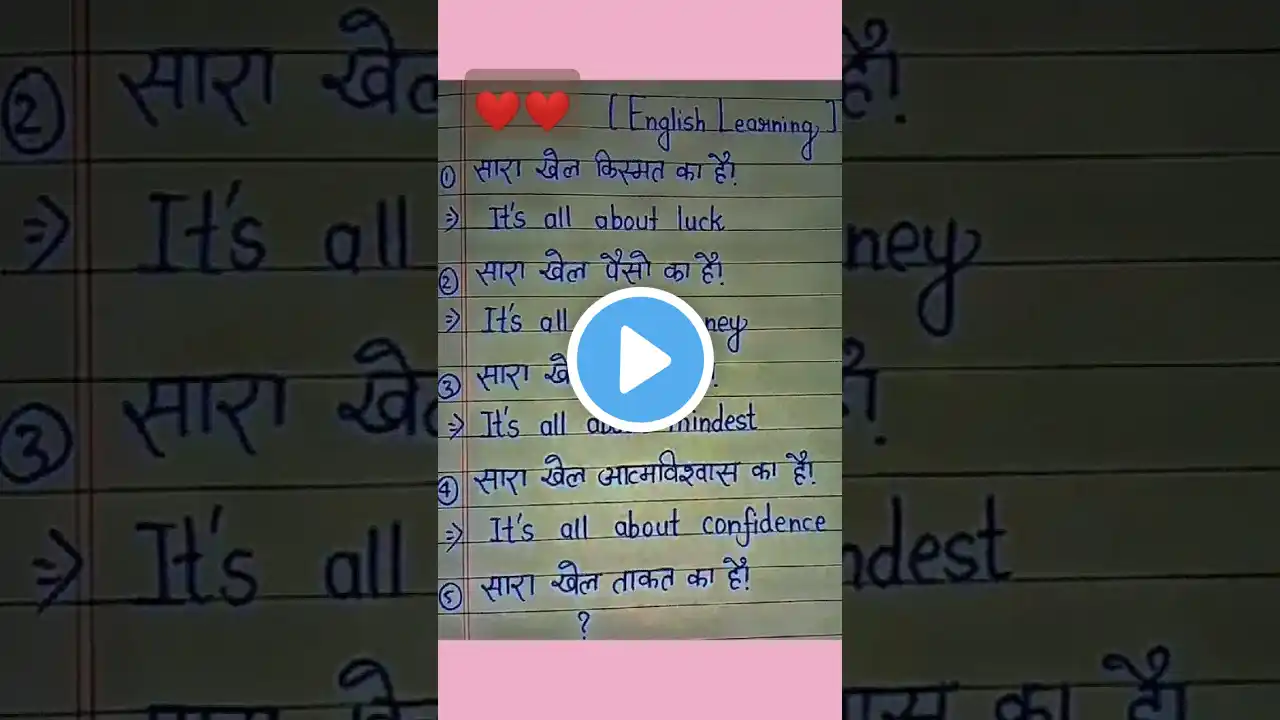 ❤️❤️ [English Learning]
① सारा खेल किस्मत का है!
⇒ It's all about luck
② सारा खेल पैसो का है!
⇒ It's all ney
③ सारा खे
⇒ It's all mindest
④ सारा खेल आत्मविश्वास का है!
⇒ It's all about confidence
⑤ सारा खेल ताकत का है!
?